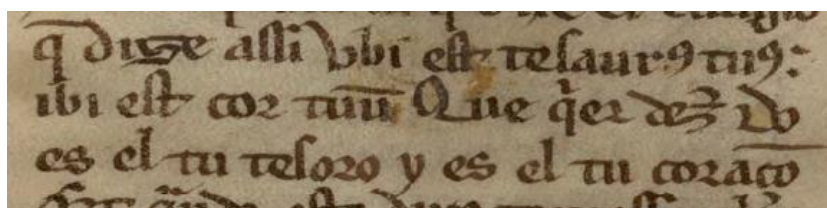 q̄ dize assi vbi est tesaurꝰ tuꝰ:
ibi est cor tuū Que qͥer dez̄ Do
es el tu tesoro y es el tu coraçō